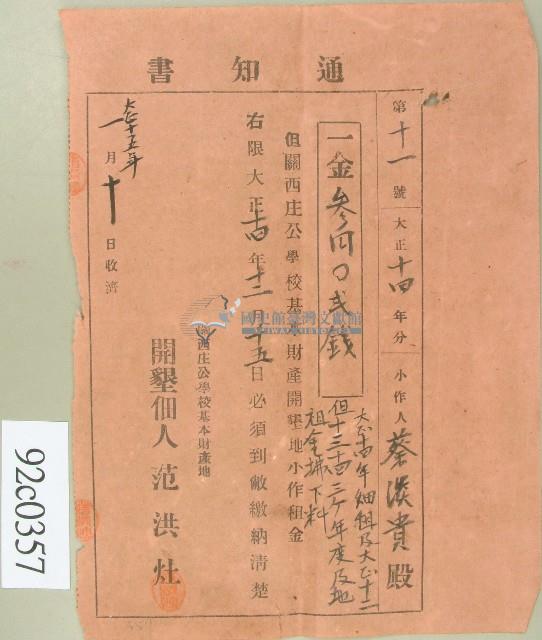 通知書
第十一號 大正十四年分 小作人 蔡淡貴殿
一金參円〇弍錢
大正十四年細租及大正十二
但十三、十四、三ケ年度及地
租金拂下料
但關西庄公學校基本財產開墾地小作租金
右限大正十四年十二月十五日必須到敝繳納清楚
關西庄公學校基本財產地
開墾佃人 范洪灶
大正十五年
一月十日收濟
國史館臺灣文獻館
TAIWAN HISTORICA
92c0357